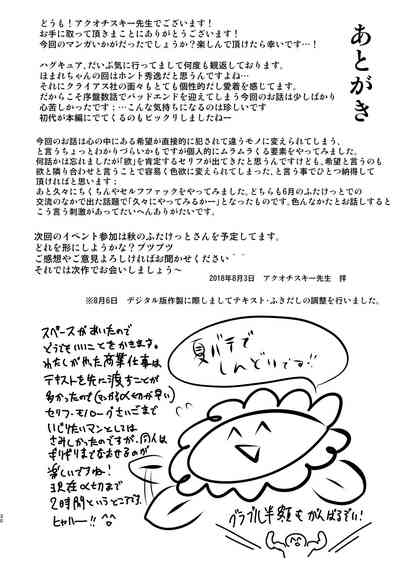 あとがき
どうも！アクオチスキー先生でございます！
お手に取って頂きまことにありがとうございます！
今回のマンガいかがだったでしょうか？楽しんで頂けたら幸いです…！
ハグキュア､だいぶ気に行ってまして何度も観返しております。
ほまれちゃんの回はホント秀逸だと思うんですよね…
それにクライアス社の面々もとても個性的だし愛着を感じてます。
だからこそ序盤数話でバッドエンドを迎えてしまう今回のお話は少しばかり
心苦しかったです；…こんな気持ちになるのは珍しいです
初代が本編にでてくるのもビックリしましたねー
今回のお話は心の中にある希望が直接的に犯されて違うモノに変えられてしまう、
と言うちょっとわかりづらいかもですが個人的にムラムラくる要素をやってみました。
何話かは忘れましたが「欲」を肯定するセリフが出てきたと思うんですけども、希望と言うのも
欲と隣り合わせと言うことで容易く色欲に変えられてしまった、と言う事でひとつ納得して
頂ければと思います；
あと久々にちくちんやセルフファックをやってみました。どちらも6月のふたけっとでの
交流のなかで出た話題で「久々にやってみるかー」となったものです。色んなかたとお話しすると
こう言う刺激があってたいへんありがたいです。
次回のイベント参加は秋のふたけっとさんを予定してます。
どれを形にしようかな？ブツブツ
ご感想やご意見よろしければお聞かせください
それでは次作でお会いしましょう～
2018年8月3日　アクオチスキー先生　拝
※8月6日　デジタル版作製に際しましてテキスト・ふきだしの調整を行いました。
スペースがあいたので
どうでもいいことをかきます。
わたしがやれた商業仕事は
テキストを先に渡すことが
多かったので(しかも〆切が早い)
セリフ・モノローグをさいごまで
いじりたいマンとしては
さみしかったのですが､同人は
ギリギリまでなおせるのが
楽しいですね！
現在〆切まで
2時間というところです。
ヒャハー!! ^^
夏バテで
しんどいでる!!
グラブル半額もがんばるでい!